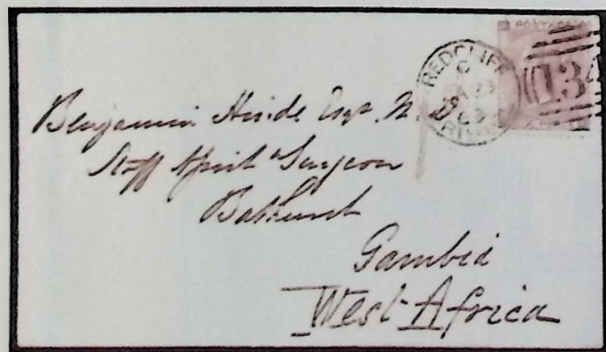 REDCLIFF
C
23
63
134
Benjamin Hinde Esqr. M.D.
Staff Assist Surgeon
Bathurst
Gambia
West Africa